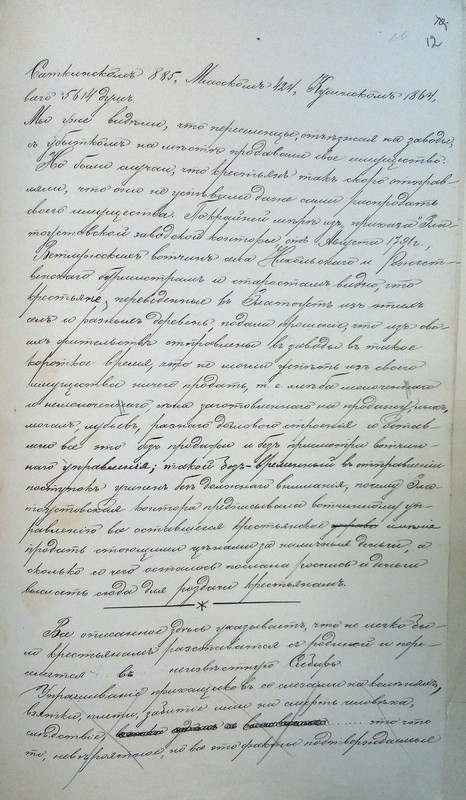 12
Саткинскомъ 885, Миасскомъ 424, Кусинскомъ 1864,
всего 5614 душъ.
Мы уже видѣли, что переселенцы, отъѣзжая на заводы,
съ убыткомъ на мѣстѣ продавали свое имущество.
Но были случаи, что крестьянъ такъ скоро отправ-
ляли, что они не успѣвали даже сами распродать
своего имущества. Покрайней мѣрѣ изъ приказа Зла-
тоустовской заводской конторы, отъ Августа 1791 г.,
Ветлужскимъ вотчинъ села Никольскаго и Рождест-
венскаго бурмистрамъ и старостамъ видно, что
крестьяне, переведенные въ Златоустъ изъ этихъ
селъ и разныхъ деревень подали прошеніе, что изъ сво-
ихъ жительствъ отправлены въ заводы въ такое
короткое время, что не могли успѣть изъ своего
имущества ничего продать, т. е. хлѣба молоченаго
и немолоченаго, сѣна заготовленнаго на продажу,
мочалъ, лубьевъ, разнаго домоваго строенія и остав-
лено все это безъ продажи и безъ присмотра вотчин-
наго управленія; такой безъ-временный въ отправленіи
поступокъ учиненъ безъ должнаго вниманія, почему Зла-
тоустовская контора предписывала вотчинному уп-
равленію все оставшееся крестьянское имѣніе
продать стоющими цѣнами за наличныя деньги, а
сколько со чего осталось послана роспись и деньги
выслать сюда для раздачи крестьянамъ.
Все описанное здѣсь указываетъ, что не легко бы-
ло крестьянамъ разставаться съ родиной и пере-
селяться въ неизвѣстную Сибирь.
Упрашиваніе прикащиковъ со слезами на колѣняхъ,
взятки, плети, забитіе ими на смерть человѣка,
слѣдствіе, ...... то что
то, невѣроятное, но все это факты подтверждаемые